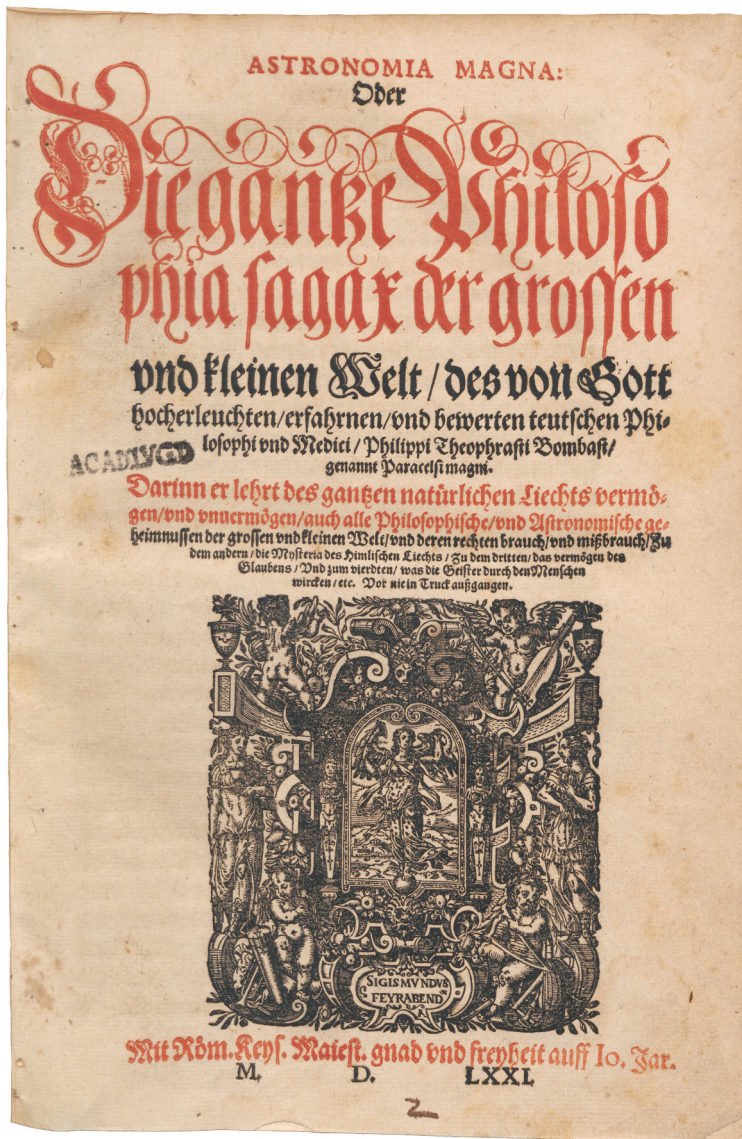 ASTRONOMIA MAGNA:
Oder
Die gantze Philoso
phia sagax der grossen
vnd kleinen Welt / des von Gott
hocherleuchten/erfahrnen/vnd bewerten teutschen Phi-
losophi vnd Medici / Philippi Theophrasti Bombast/
genannt Paracelsi magni.
ACAD LVGD
Darinn er lehrt des gantzen natürlichen Liechts vermö-
gen/vnd vnuermögen/auch alle Philosophische/vnd Astronomische ge-
heimnussen der grossen vnd kleinen Welt/vnd deren rechten brauch/vnd mißbrauch/Zu
dem andern / die Mysteria des Himlischen Liechts / Zu dem dritten/ das vermögen des
Glaubens / Vnd zum vierdten/ was die Geister durch den Menschen
wircken/ etc. Vor nie in Truck außgangen.
SIGISMVNDVS
FEYRABEND
Mit Röm. Keys. Maiest. gnad vnd freyheit auff 10. Jar.
M. D. LXXI.
2